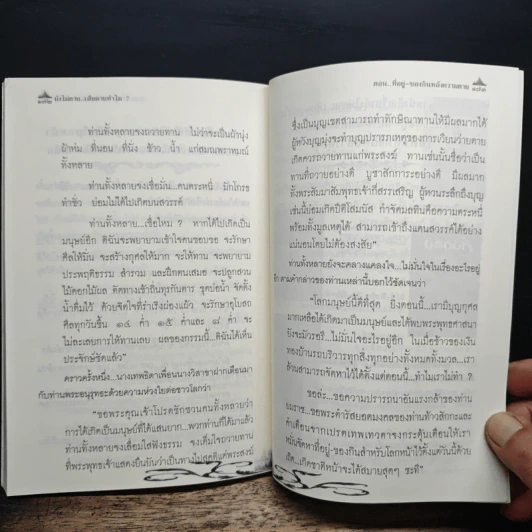 ๑๗๒ ยังไม่ตาย..เสียดายทำไม ?
ท่านทั้งหลายจงถวายทาน ไม่ว่าจะเป็นผ้านุ่ง
ผ้าห่ม ที่นอน ที่นั่ง ข้าว น้ำ แก่สมณพราหมณ์
ทั้งหลาย
ท่านทั้งหลายจงเชื่อมั่น...คนตระหนี่ มักโกรธ
ทำชั่ว ย่อมไม่ได้ไปเกิดบนสวรรค์
ท่านทั้งหลาย...เชื่อไหม ? หากได้ไปเกิดเป็น
มนุษย์อีก ดิฉันจะพยายามเข้าใจคนขอบขอ จะรักษา
ศีลให้มั่น จะสร้างกุศลให้มาก จะให้ทาน จะพยายาม
ประพฤติธรรม สำรวม และฝึกตนเสมอ จะปลูกสวน
ไม้ดอกไม้ผล ตัดทางเข้าถิ่นทุรกันดาร ขุดบ่อน้ำ จัดตั้ง
น้ำดื่มไว้ ด้วยจิตใจที่ร่าเริงผ่องแผ้ว จะรักษาอุโบสถ
ศีลทุกวันขึ้น ๑๔ ค่ำ ๑๕ ค่ำ และ ๘ ค่ำ จะ
ไม่ละเลยการให้ทานเลย ผลของกรรมนี้...ดิฉันได้เห็น
ประจักษ์ชัดแล้ว”
คราวครั้งหนึ่ง...นางเทพธิดาเพื่อนนางวิสาขาฝากเตือนมา
กับท่านพระอนุรุทธะด้วยความห่วงใยต่อชาวโลกว่า
“ขอพระคุณเจ้าโปรดชักชวนคนทั้งหลายว่า
การได้เกิดเป็นมนุษย์ที่ได้แสนยาก...พวกท่านก็ได้มาแล้ว
ท่านทั้งหลายจงเลื่อมใสฟังธรรม จงเต็มใจถวายทาน
ที่พระพุทธเจ้าแสดงยืนยันว่าเป็นทางไปสุคติแด่พระสงฆ์
ตอน...ที่อยู่-ของกินหลังความตาย ๑๗๓
ซึ่งเป็นบุญเขตสามารถทำทักษิณาทานให้มีผลมากได้
ผู้หวังบุญมุ่งจะทำบุญปรารภเหตุของการเวียนว่ายตาย
เกิดควรถวายทานแก่พระสงฆ์ ทานเช่นนั้นชื่อว่าเป็น
ทานที่ถวายอย่างดี บูชาสักการะอย่างดี มีผลมาก
ทั้งพระสัมมาสัมพุทธเจ้าก็สรรเสริญ ผู้หวนระลึกถึงบุญ
เช่นนี้ย่อมเกิดปีติโสมนัส กำจัดมลทินคือความตระหนี่
พร้อมทั้งมูลเหตุได้ สามารถเข้าถึงแดนสวรรค์ได้อย่าง
แน่นอนโดยไม่ต้องสงสัย”
ท่านทั้งหลายยังจะคลางแคลงใจ...ไม่มั่นใจในเรื่องอะไรอยู่
อีก ตามคำกล่าวของท่านเหล่านี้บอกไว้ชัดเจนว่า
“โลกมนุษย์นี้ดีที่สุด ยิ่งตอนนี้...เรามีบุญกุศล
มากเหลือได้เกิดมาเป็นมนุษย์และได้พบพระพุทธศาสนา
ยังจะมัวรอรี...ไม่มั่นใจอะไรอยู่อีก ในเมื่อข้าวของเงิน
ทองบ้านรถบริวารทุกสิ่งทุกอย่างทั้งหมดทั้งมวล...เรา
ล้วนสามารถจัดหาไว้ได้ตั้งแต่ตอนนี้...ทำไมเราไม่ทำ ?
ขอถ่ะ...ขอความปรารถนาอันแรงกล้าของท่าน
ขอพระดำรัสยอดมงคลของท่านท้าวสักกะและ
คำเตือนจากเปรตเทพเทวดาจงกระตุ้นเตือนให้เรา
จัดหาที่อยู่-ของกินสำหรับโลกหน้าไว้ตั้งแต่วันนี้ด้วย
เถิด...เกิดชาติหน้าจะได้สบายสุดๆ ซะที”